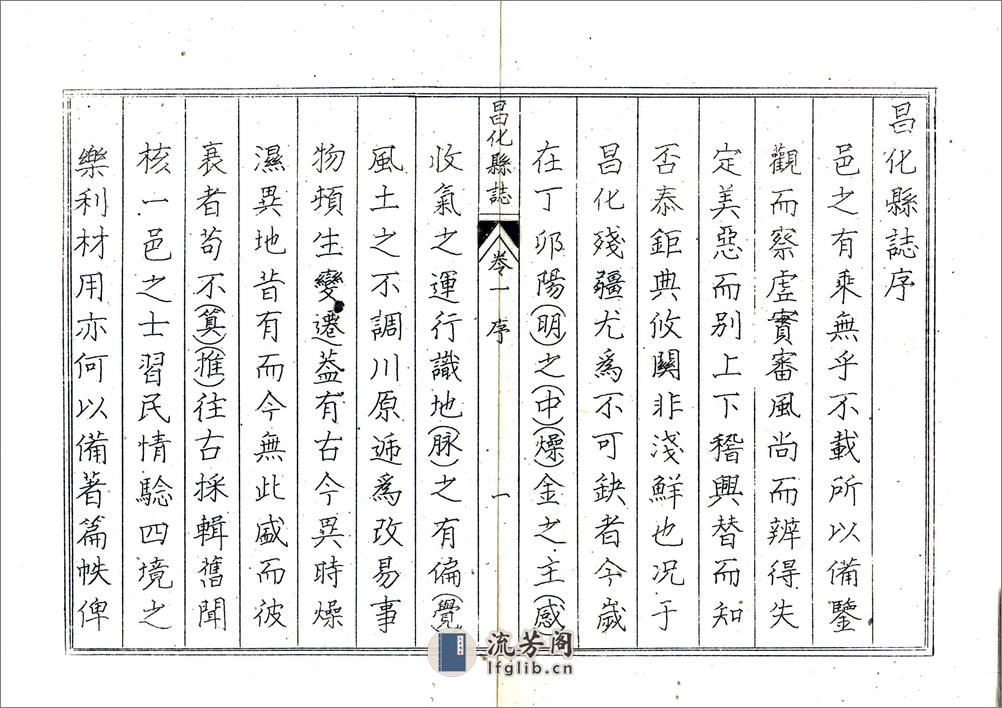 昌化縣誌序
邑之有乘無乎不載所以備鑒
觀而察虛實審風尚而辨得失
定美惡而別上下稽興替而知
否泰鉅典攸關非淺鮮也况于
昌化殘疆尤為不可缺者今歲
在丁卯陽(明)之(中)(燥)金之主(感)
昌化縣誌 卷一 序 一
收氣之運行識地(脉)之有偏(覺)
風土之不調川原遞為改易事
物頓生變遷(葢)有古今異時燥
濕異地昔有而今無此盛而彼
衰者苟不(算)(推)往古採輯舊聞
核一邑之士習民情驗四境之
樂利材用亦何以備著篇帙俾
流芳阁
lfglib.cn